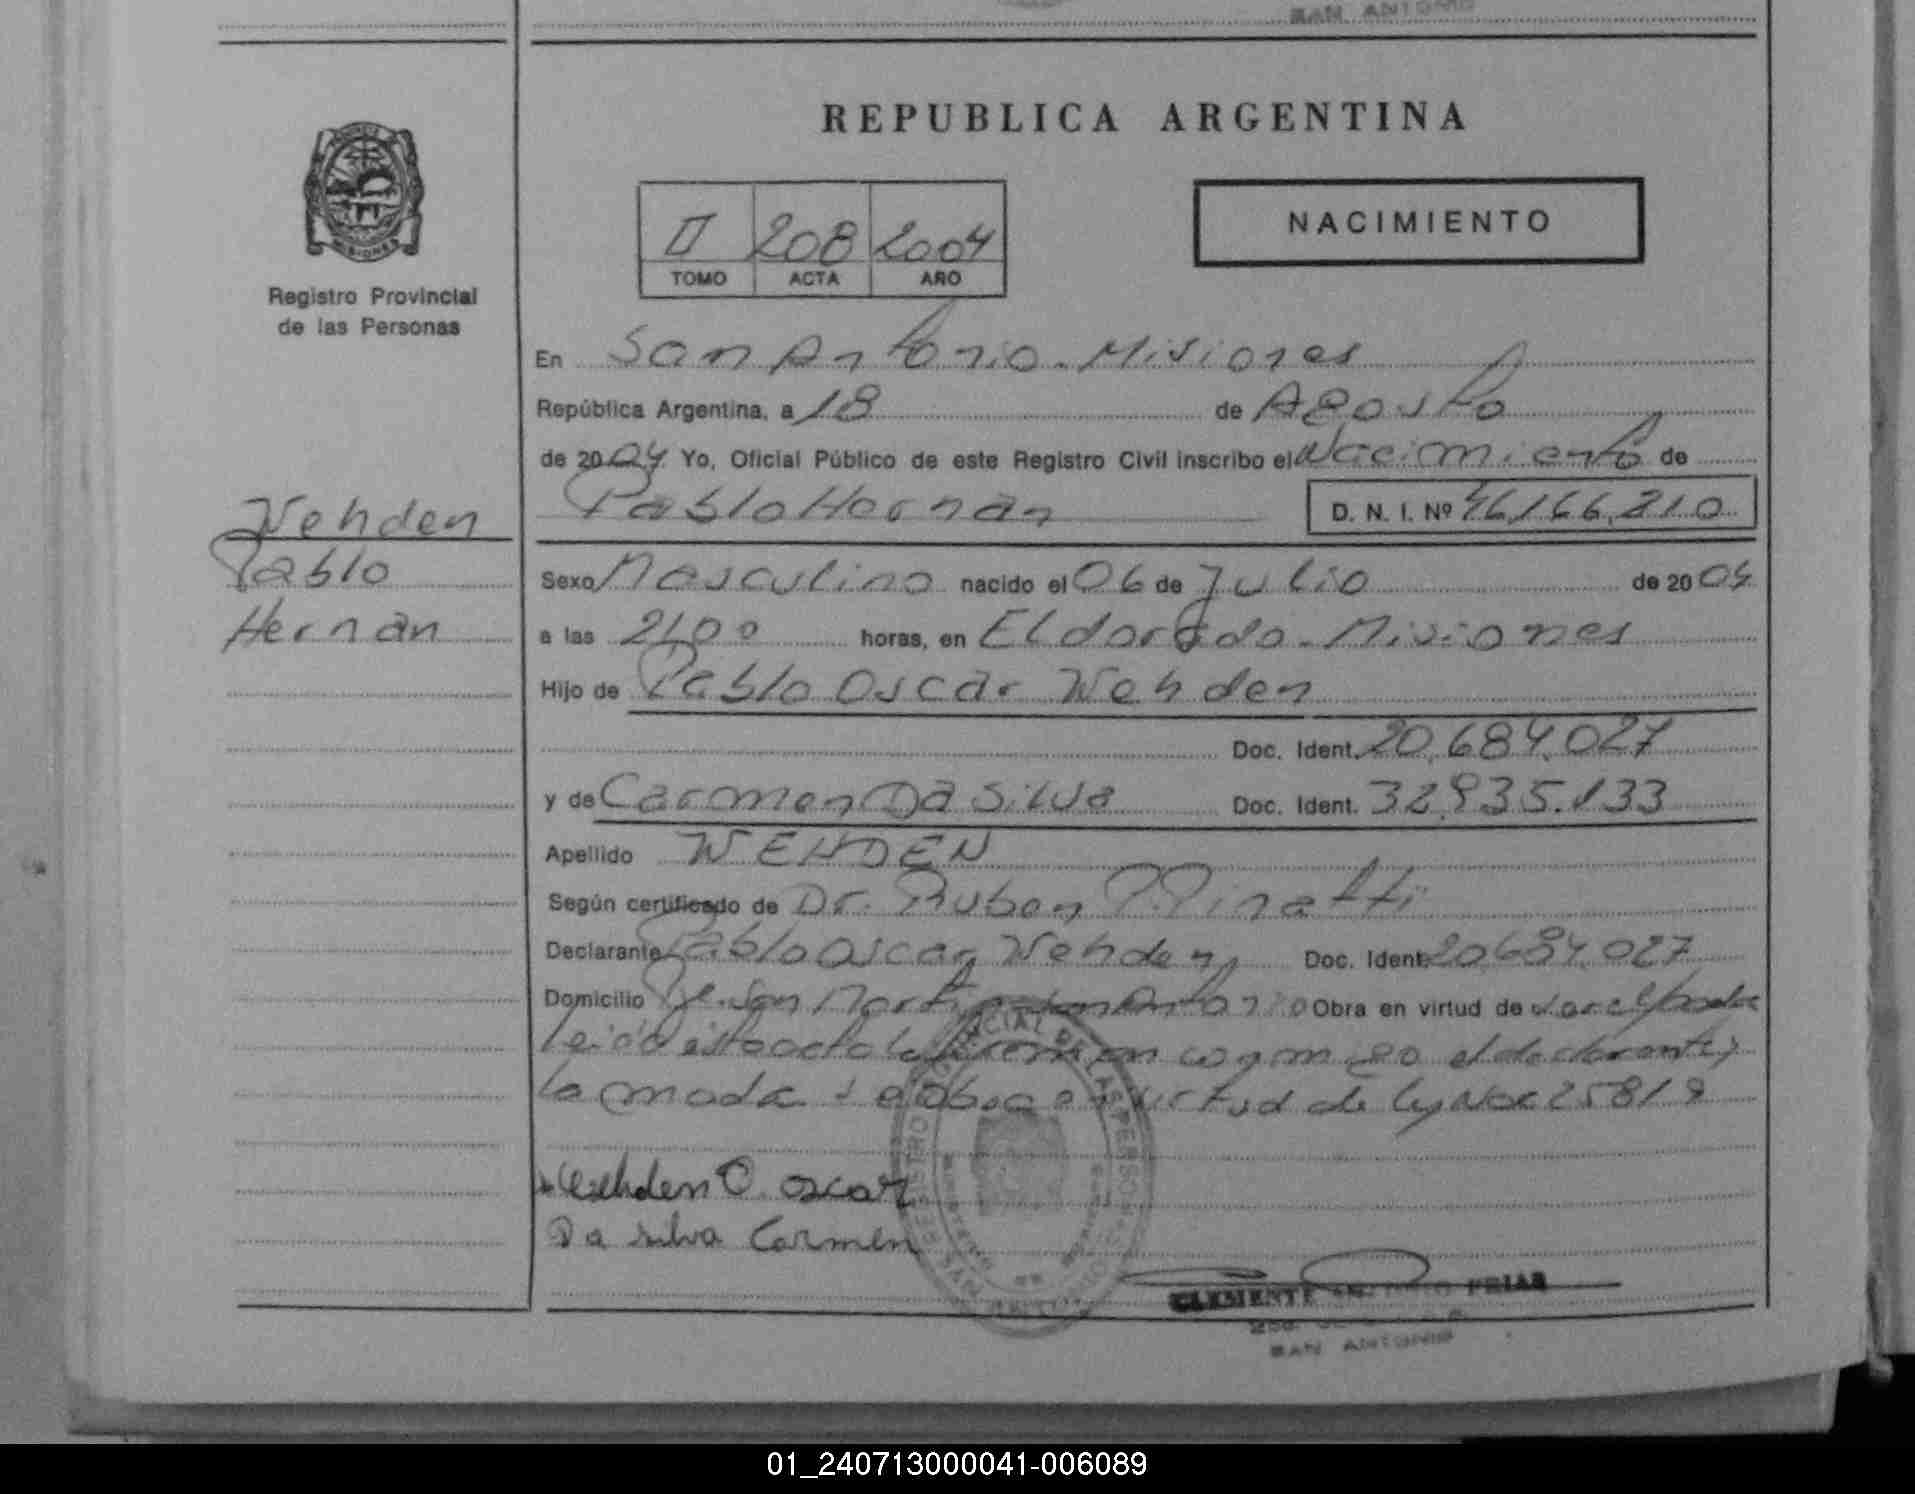 SAN ANTONIO
REPUBLICA ARGENTINA
NACIMIENTO
II 208 2004
TOMO ACTA AÑO
MISIONES
Registro Provincial
de las Personas
En San Antonio - Misiones
República Argentina, a 18 de Agosto
de 2004 Yo, Oficial Público de este Registro Civil inscribo el Nacimiento de
Pablo Hernán D. N. I. Nº 46.166.210
Wehden
Pablo
Hernán
Sexo Masculino nacido el 06 de Julio de 2004
a las 2100 horas, en Eldorado - Misiones
Hijo de Pablo Oscar Wehden
Doc. Ident. 20.684.027
y de Carmen Da Silva Doc. Ident. 32.935.133
Apellido WEHDEN
Según certificado de Dr. Ruben Pinatti
Declarante Pablo Oscar Wehden Doc. Ident. 20.684.027
Domicilio San Martin San Antonio Obra en virtud de
leida esta acta la firman conmigo el declarante y
la madre se obra en virtud de ley Nº 25819
Wehden O. Oscar
Da silva Carmen
CLEMENTE ANTONIO FRIAS
SAN ANTONIO
01_240713000041-006089